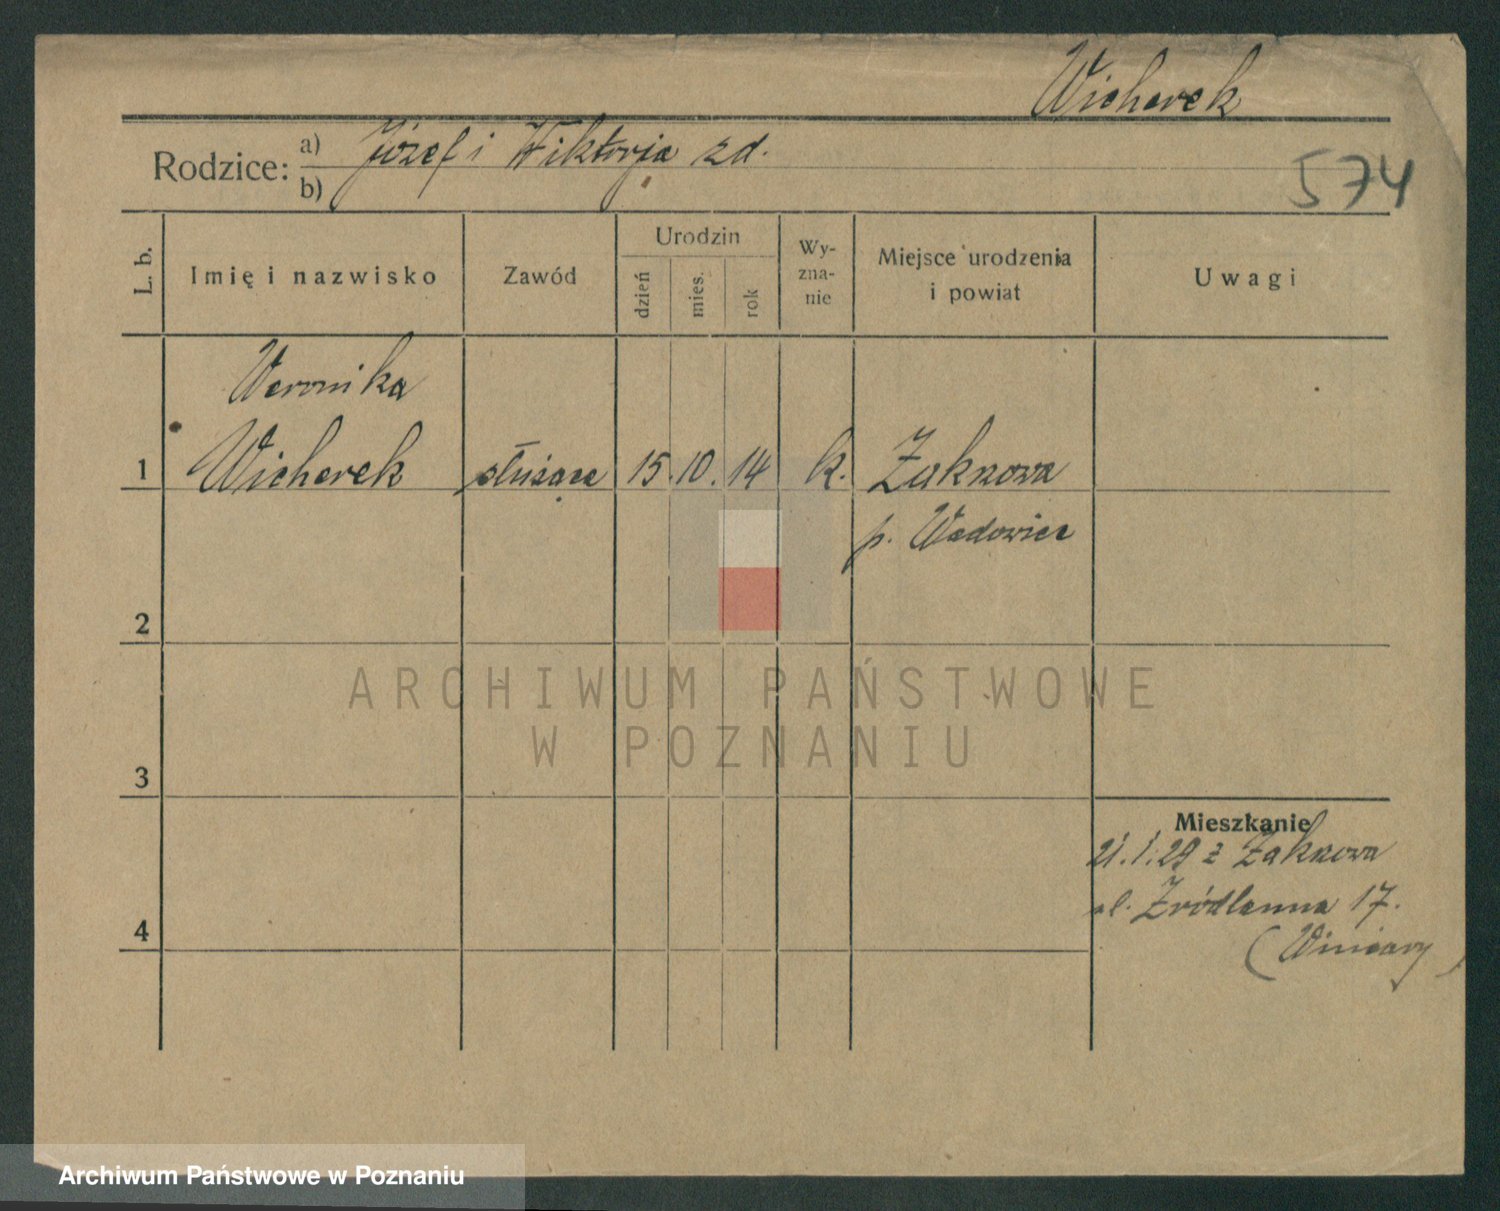 Wicherek
Rodzice: a) Józef i Wiktorja zd.
b)
574
L. b.
Imię i nazwisko
Zawód
Urodzin
dzień
mies.
rok
Wy-
zna-
nie
Miejsce urodzenia
i powiat
Uwagi
Weronika
1 Wicherek służąca 15. 10. 14 k.
p. Wadowice
2
3
4
Mieszkanie
21.1.29 z
ul. Źródlanna 17.
(Winiary)
ARCHIWUM PAŃSTWOWE
W POZNANIU
Archiwum Państwowe w Poznaniu